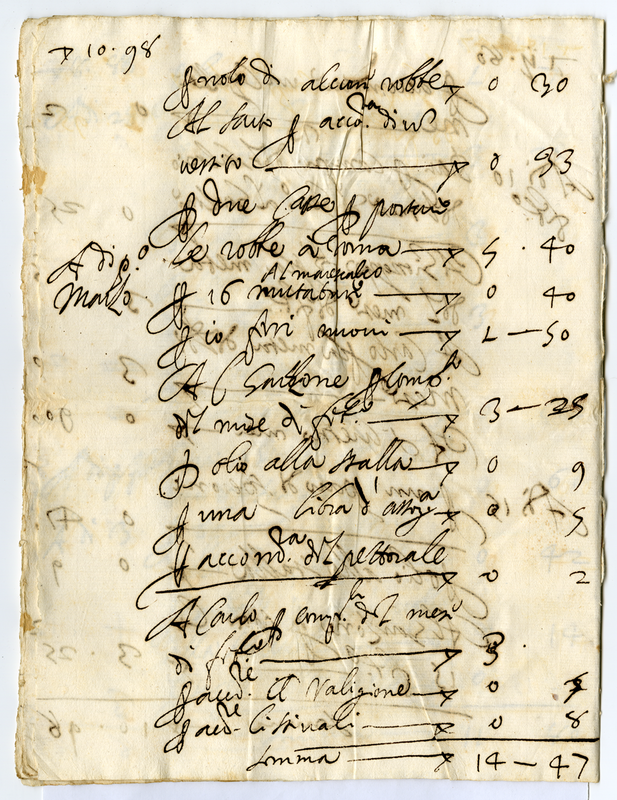 10.98
p nolo di alcune robbe 0 30
Al Sarto p acco.ra di un
vestito 0 93
p due Casse p portare
le robbe à Roma 5 . 40
A di p.o Marzo
Al maniscalco
p 16 mutature 0 40
p 10 ferri nuovi 1 — 50
Al Garzone p comp.to
del mese di 3 — 25
p olio alla stalla 0 9
p una libra d' 0 5
p accom.ra del pettorale 0 2
A Carlo p comp.to del mese
di 3 .
p acc.re il Valigione 0
p acc.re li stivali 0 8
somma 14 — 47